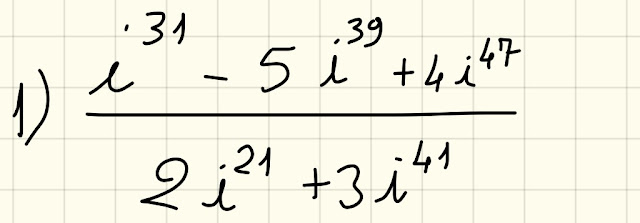 1) \frac{i^{31} - 5i^{39} + 4i^{47}}{2i^{21} + 3i^{41}}